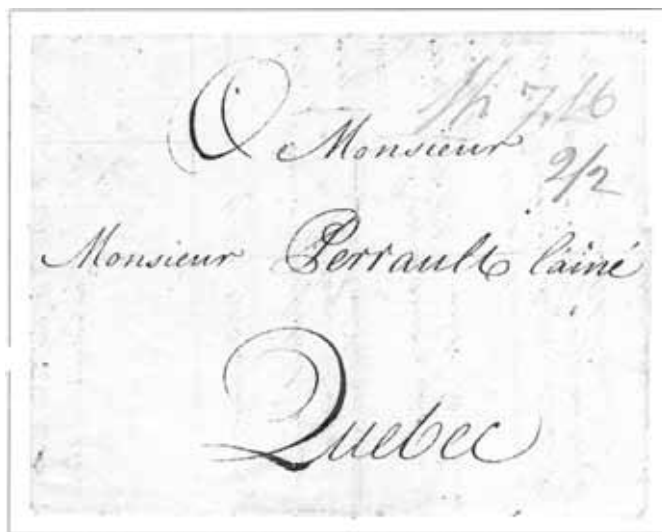 A Monsieur
2/2
Monsieur Perrault l'ainé
Quebec